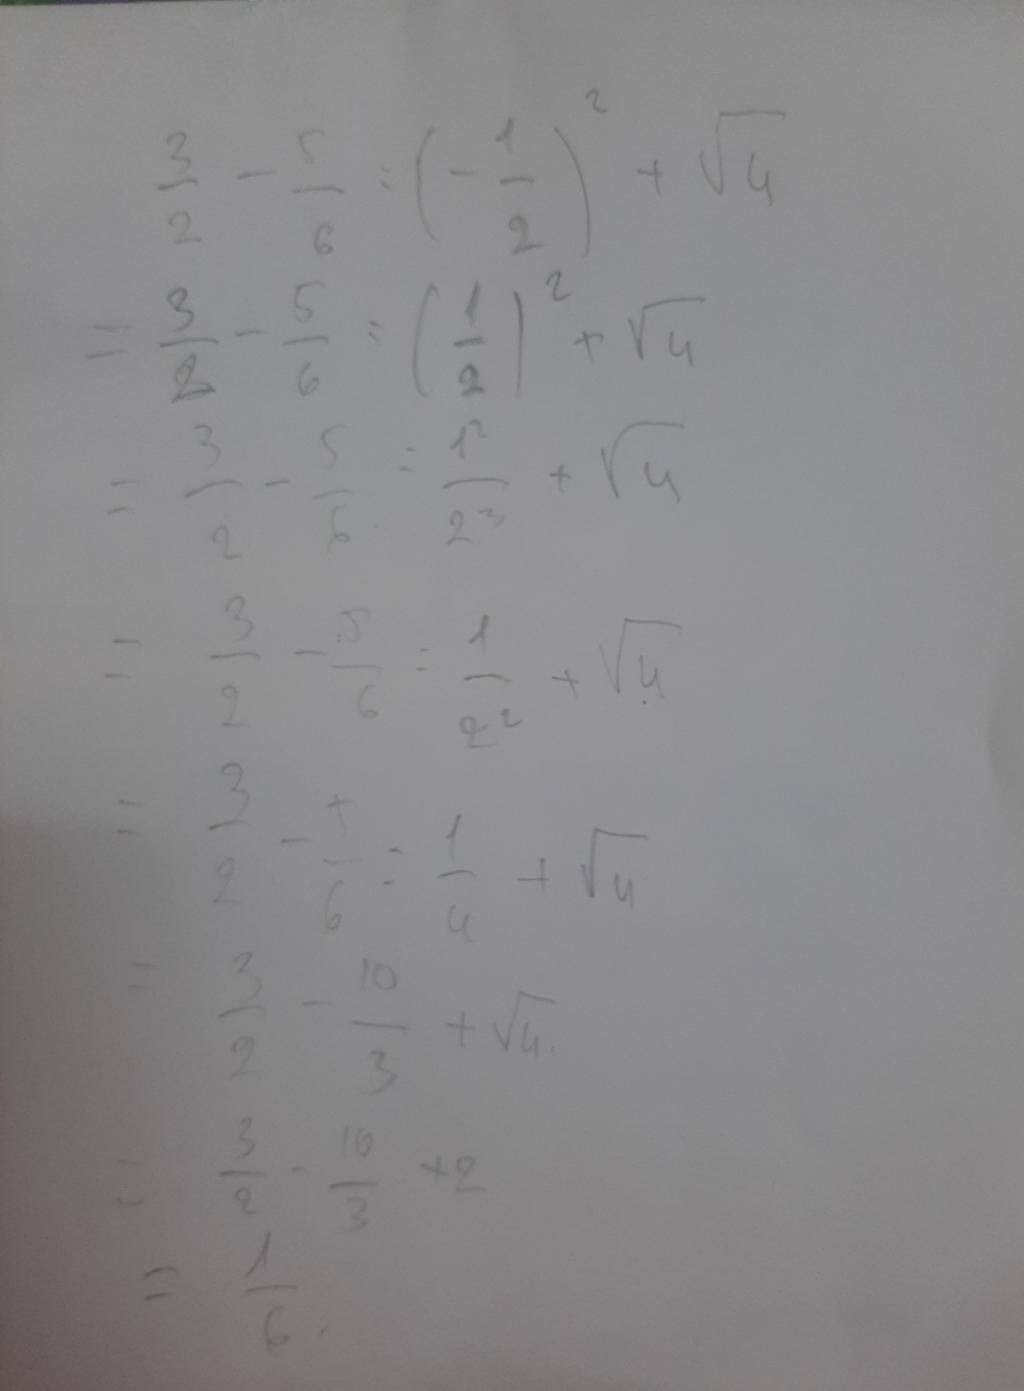 3/2 - 5/6 : (-1/2)² + √4
= 3/2 - 5/6 : (1/2)² + √4
= 3/2 - 5/6 : 1²/2² + √4
= 3/2 - 5/6 : 1/2² + √4
= 3/2 - 5/6 : 1/4 + √4
= 3/2 - 10/3 + √4.
= 3/2 - 10/3 + 2
= 1/6.